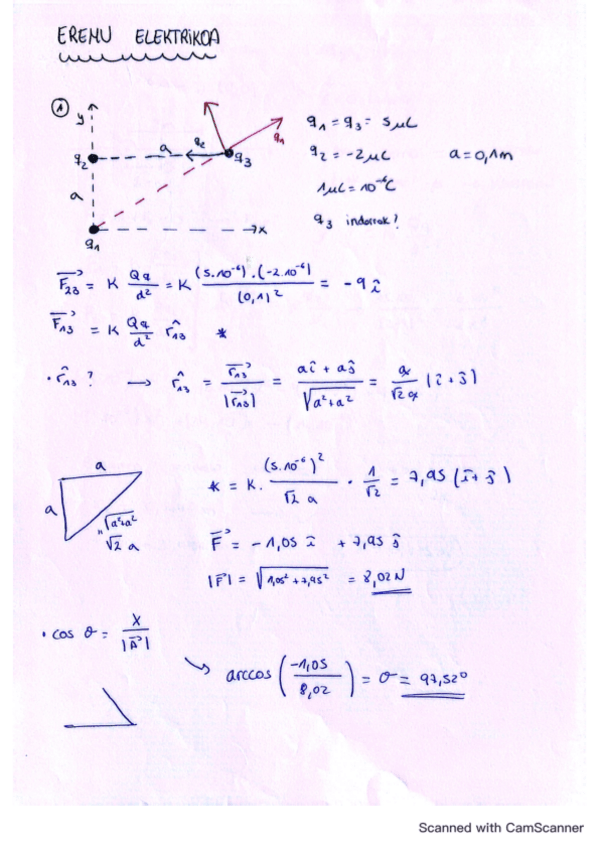 EREMU ELEKTRIKOA
①
y
a
q2
q2
q3
q1
a
q1
x
q1 = q3 = 5 μC
q2 = -2 μC a = 0,1m
1 μC = 10⁻⁶C
q3 indarrak?
F⃗23 = K Qq/d² = K (5.10⁻⁶).(-2.10⁻⁶)/(0,1)² = -9 î
F⃗13 = K Qq/d² r̂13 *
· r̂13 ? → r̂13 = r⃗13/|r⃗13| = aî + aĵ/√a²+a² = a/√2 a (î + ĵ)
a
a
√a²+a²
"
√2 a
* = K. (5.10⁻⁶)²/√2 a · 1/√2 = 7,95 (î + ĵ)
F⃗ = -1,05 î + 7,95 ĵ
|F⃗| = √1,05² + 7,95² = 8,02 N
· cos θ = X/|A⃗|
arccos (-1,05/8,02) = θ = 97,52º
Scanned with CamScanner